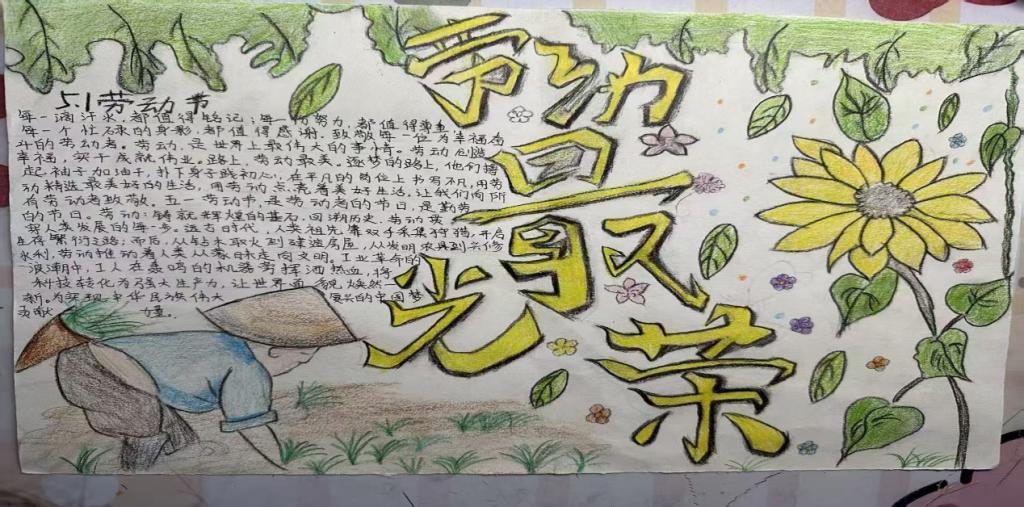 劳动
最
光
荣
5.1劳动节
每一滴汗水,都值得铭记;每一份努力,都值得尊重
每一个忙碌的身影,都值得感谢。致敬每一位为幸福奋
斗的劳动者。劳动,是世界上最伟大的事情。劳动创造
幸福,实干成就伟业。路上,劳动最美。逐梦的路上,他们撸
起袖子加油干,扑下身子践初心,在平凡的岗位上书写不凡,用劳
动精造最美好的生活,用劳动点亮着美好生活,让我们向所
有劳动者致敬。五一劳动节,是劳动者的节日,是勤劳
的节日。劳动:铸就辉煌的基石,回溯历史,劳动贯
穿人类发展的每一步。远古时代,人类祖先靠双手采集狩猎,开启
生存繁衍之路;而后,从钻木取火到建造房屋,从发明农具到兴修
水利,劳动推动着人类从蒙昧走向文明。工业革命的
浪潮中,工人在轰鸣的机器旁挥洒热血,将
科技转化为强大生产力,让世界面貌焕然一
新。为实现中华民族伟大 复兴的中国梦
贡献